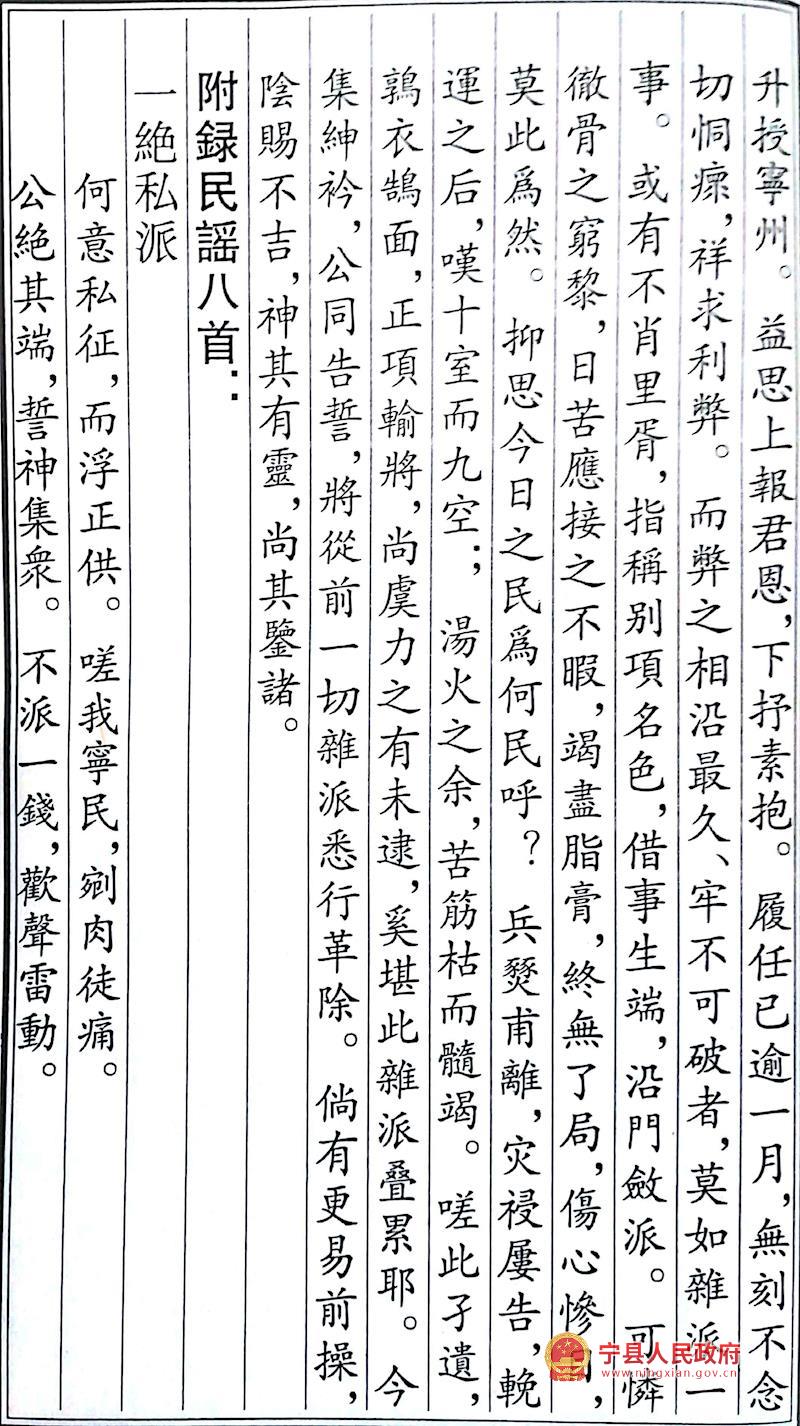 升授寧州。益思上報君恩，下抒素抱。履任已逾一月，無刻不念
切恫瘝，祥求利弊。而弊之相沿最久、牢不可破者，莫如雜派一
事。或有不肖里胥，指稱别項名色，借事生端，沿門斂派。可憐
徹骨之窮黎，日苦應接之不暇，竭盡脂膏，終無了局，傷心慘，
莫此爲然。抑思今日之民爲何民呼？兵燹甫離，灾祲屢告，輓
運之后，嘆十室而九空；湯火之余，苦筋枯而髓竭。嗟此孑遺，
鶉衣鵠面，正項輸將，尚虞力之有未逮，奚堪此雜派叠累耶。今
集紳衿，公同告誓，將從前一切雜派悉行革除。倘有更易前操，
陰賜不吉，神其有靈，尚其鑒諸。
附録民謡八首：
一絶私派
何意私征，而浮正供。嗟我寧民，剜肉徒痛。
公絶其端，誓神集衆。不派一錢，歡聲雷動。
宁县人民政府
www.ningxian.gov.cn